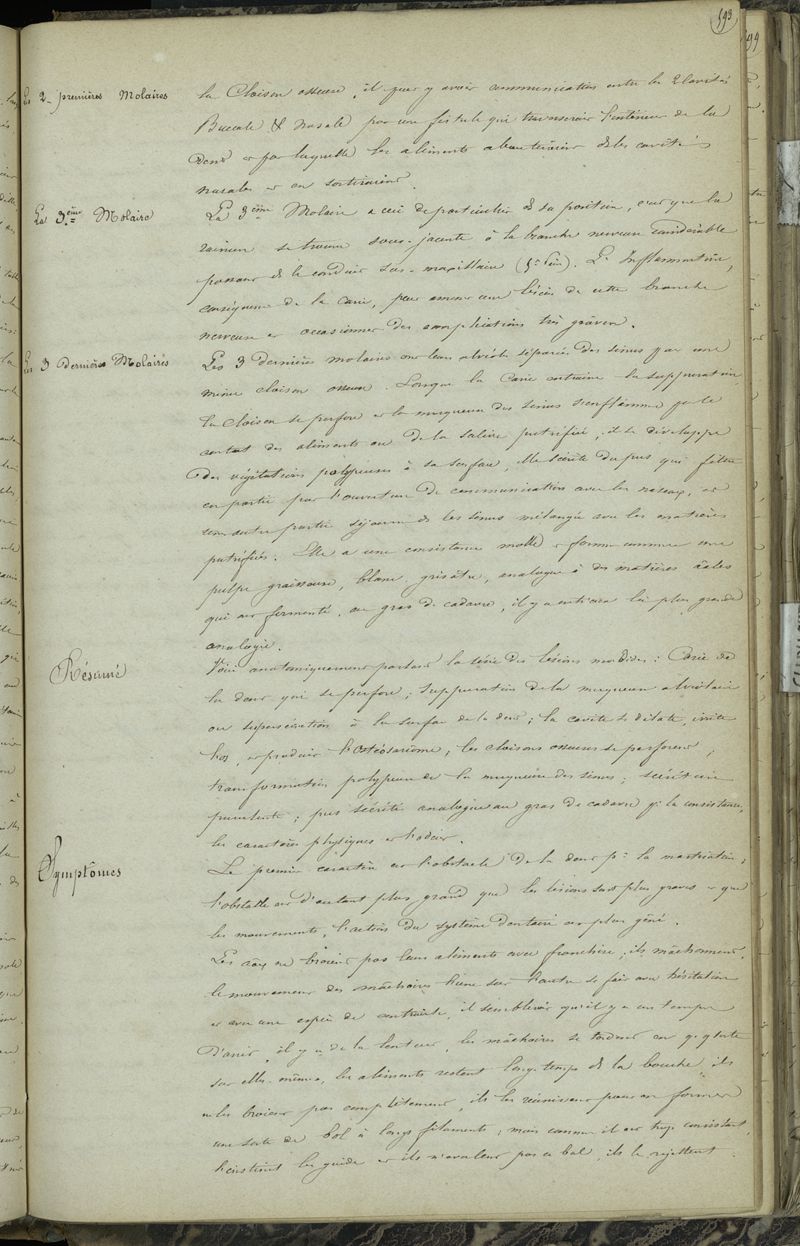 593
Les 2 premières Molaires
la Cloison osseuse, il peut y avoir communication entre les 2 Cavités
Buccale & Nasale par une fistule qui traverserait l'intérieur de la
dent et par laquelle les aliments aboutiraient ds les cavités
nasales et en sortiraient.
La 3ème Molaire
La 3ème Molaire a ceci de particulier ds sa position, c'est que la
racine se trouve sous-jacente à la branche nerveuse considérable
passant ds le conduit sus-maxillaire (5e Pre). L'Inflammation,
conséquence de la Carie, peut amener une lésion de cette branche
nerveuse et occasionner des complications très graves.
Les 3 Dernières Molaires
Les 3 dernières molaires ont leurs alvéoles séparées des sinus par une
mince cloison osseuse. Lorsque la Carie entraîne la suppuration
la Cloison se perfore et la muqueuse des sinus s'enflamme par le
contact des aliments ou de la salive putréfiée, il se développe
des végétations polypeuses à sa surface, elle sécrète du pus qui filtre
en partie par l'ouverture de communication avec les naseaux, et
une autre partie séjourne ds les sinus mélangée avec les matières
putréfiées. Elle a une consistance molle et forme comme une
pulpe graisseuse, blanc grisâtre, analogue à des matières
qui ont fermenté, au gras de cadavre, il y a entr'eux la plus grande
analogie.
Résumé
Voici anatomiquement parlant la série des lésions morbides : Carie de
la dent qui se perfore ; suppuration de la muqueuse alvéolaire
ou supersécrétion à la surface de la dent ; la cavité se dilate, irrite
l'os, et produit l'ostéosarcome, les cloisons osseuses se perforent ;
transformation polypeuse de la muqueuse des sinus ; sécrétion
purulente ; pus sécrété analogue au gras de cadavre pr la consistance,
les caractères physiques et l'odeur.
Symptômes
Le premier caractère est l'obstacle de la dent pr la mastication ;
l'obstacle est d'autant plus grand que les lésions sont plus graves et que
les mouvements, l'action du système dentaire est plus gêné.
Les chx ne broient pas leurs aliments avec franchise, ils mâchonnent,
le mouvement des mâchoires l'une sur l'autre se fait avec hésitation
et avec une espèce de contrainte, il semblerait qu'il y a un temps
d'arrêt, il y a de la lenteur, les mâchoires se tordent en qq sorte
sur elles-mêmes, les aliments restent long-temps ds la bouche, ils
ne les broient pas complètement, ils les réunissent pour en former
une sorte de bol à longs filaments ; mais comme il est trop consistant,
l'instinct les guide et ils n'avalent pas ce bol, ils le rejettent